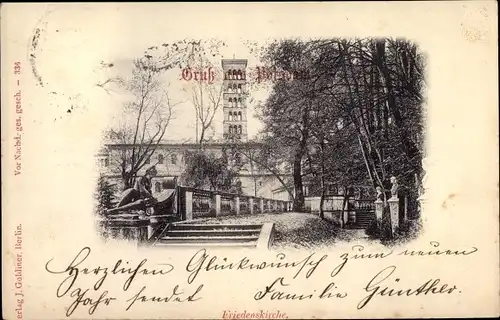 Gruß aus Potsdam
Herzlichen Glückwunsch zum neuen
Jahr sendet Familie Günther.
Friedenskirche.
Verlag J. Goldiner, Berlin.
Vor Nachd. ges. gesch. — 336